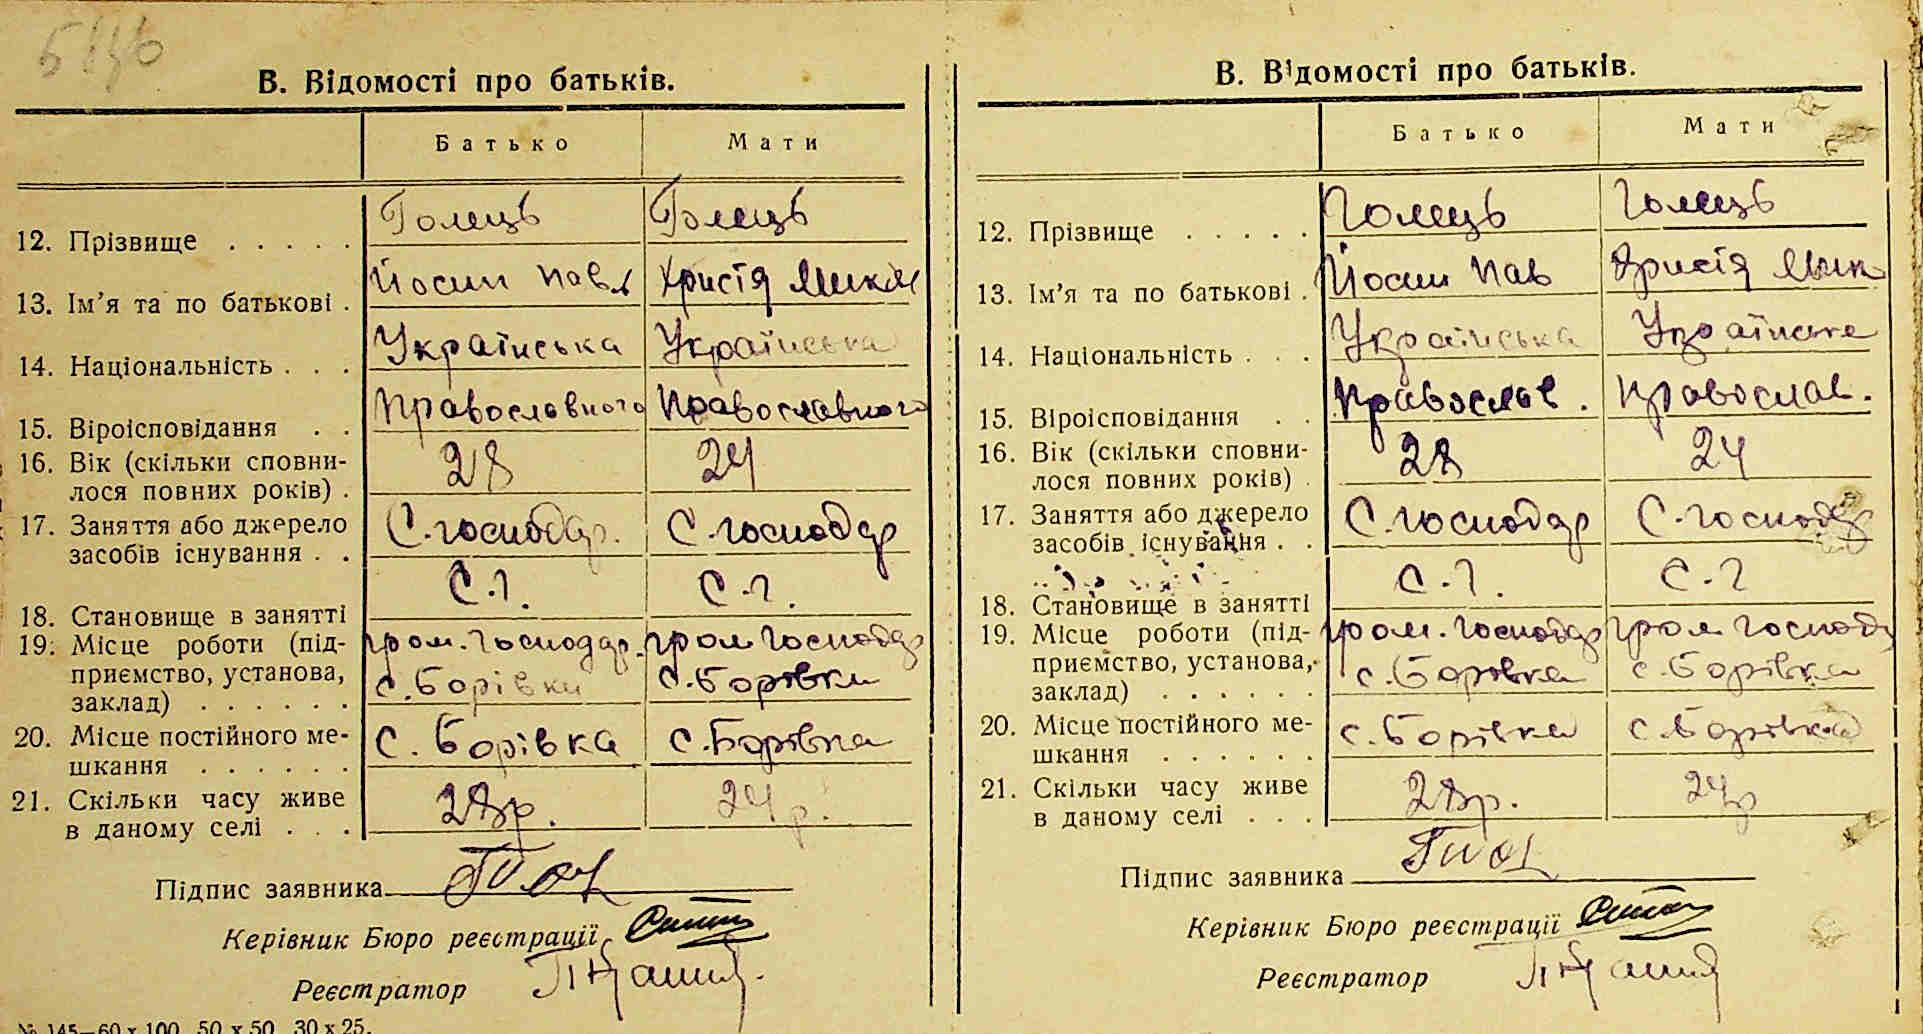 В. Відомості про батьків.
Батько Мати
12. Прізвище . . . . . Голець Голець
13. Ім'я та по батькові . Йосип Пав. Христя Микол
14. Національність . . . Українська Українська
15. Віроісповідання . . Православного Православного
16. Вік (скільки сповни-
лося повних років) . 28 24
17. Заняття або джерело
засобів існування . . С.господар. С.господар
18. Становище в занятті С.г. С.г.
19. Місце роботи (під- гром.господар. гром господар
приємство, установа, с.Борівки с.Борівки
заклад) . . . . . .
20. Місце постійного ме- с. Борівка с.Борівка
шкання . . . . . .
21. Скільки часу живе
в даному селі . . . 28р. 24р.
Підпис заявника
Керівник Бюро реєстрації
Реєстратор
№ 145—60 x 100 50 x 50 30 x 25.
В. Відомості про батьків.
Батько Мати
12. Прізвище . . . . . Голець Голець
13. Ім'я та по батькові . Йосип Пав Христя Мик
14. Національність . . . Українська
15. Віроісповідання . . Православ. Православ.
16. Вік (скільки сповни-
лося повних років) . 28 24
17. Заняття або джерело
засобів існування . . С.господар С.господар
18. Становище в занятті С.г. С.г
19. Місце роботи (під- гром.господар гром господ
приємство, установа, с.Борівка с.Борівка
заклад) . . . . . .
20. Місце постійного ме- с.Борівка с.Борівка
шкання . . . . . .
21. Скільки часу живе
в даному селі . . . 28р. 24р
Підпис заявника
Керівник Бюро реєстрації
Реєстратор